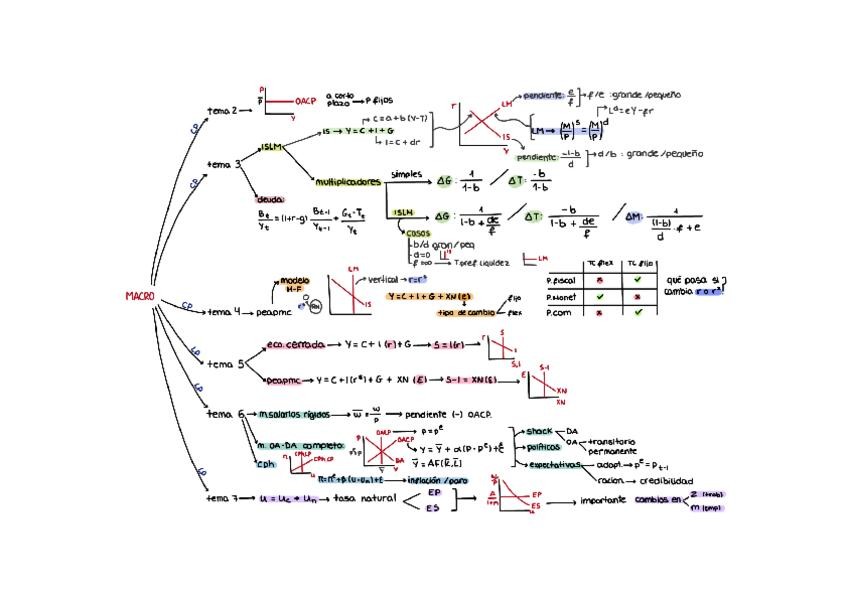 MACRO
cp
tema 2
P
P̄
OACP
Y
a corto plazo → P fijos
cp
tema 3
ISLM
IS → Y = C + I + G
C = a + b(Y-T)
I = c + dr
r
LM
IS
Y
pendiente: e/f → f/e : grande/pequeño
L^d = eY - fr
LM → (M/P)^s = (M/P)^d
pendiente: -1-b/d → d/b : grande/pequeño
multiplicadores
simples
ΔG : 1/1-b / ΔT : -b/1-b
ISLM
ΔG : 1/1-b + de/f / ΔT : -b/1-b + de/f / ΔM : 1/(1-b)/d · f + e
casos
b/d gran/peq
d=0
IS
f=∞ → T.pref liquidez
LM
deuda:
Bt/Yt = (1+r-g) Bt-1/Yt-1 + Gt-Tt/Yt
cp
tema 4 → peapmc
modelo M-F
LM
IS
vertical → r = r*
Y = C + I + G + XN(e)
tipo de cambio
fijo
flex
TC flex TC fijo
P.fiscal ✗ ✓
P.Monet ✓ ✗
P.com ✗ ✓
qué pasa si cambia r o r*?
cp
tema 5
eco. cerrada → Y = C + I(r) + G → S = I(r)
r
S
I
S,I
peapmc → Y = C + I(r*) + G + XN(E) → S-I = XN(E)
E
S-I
XN
XN
cp
tema 6
m.salarios rígidos → w̄ = w/P → pendiente (-) OACP.
m. OA-DA completo:
OALP → P = P^e
OACP → Y = Ȳ + α(P - P^e) + E
DA
Ȳ
Y
Ȳ = AF(K̄, L̄)
shock
DA
OA
transitorio
permanente
políticas
expectativas
adapt. → P^e = P t-1
racion → credibilidad
cph
CPhLP
CPhCP
u
π = π^e + β(u - un) + E → inflación/paro
cp
tema 7 → u = uc + un → tasa natural
EP
ES
EP
ES
u
importante cambios en
z (trab)
m (emp)